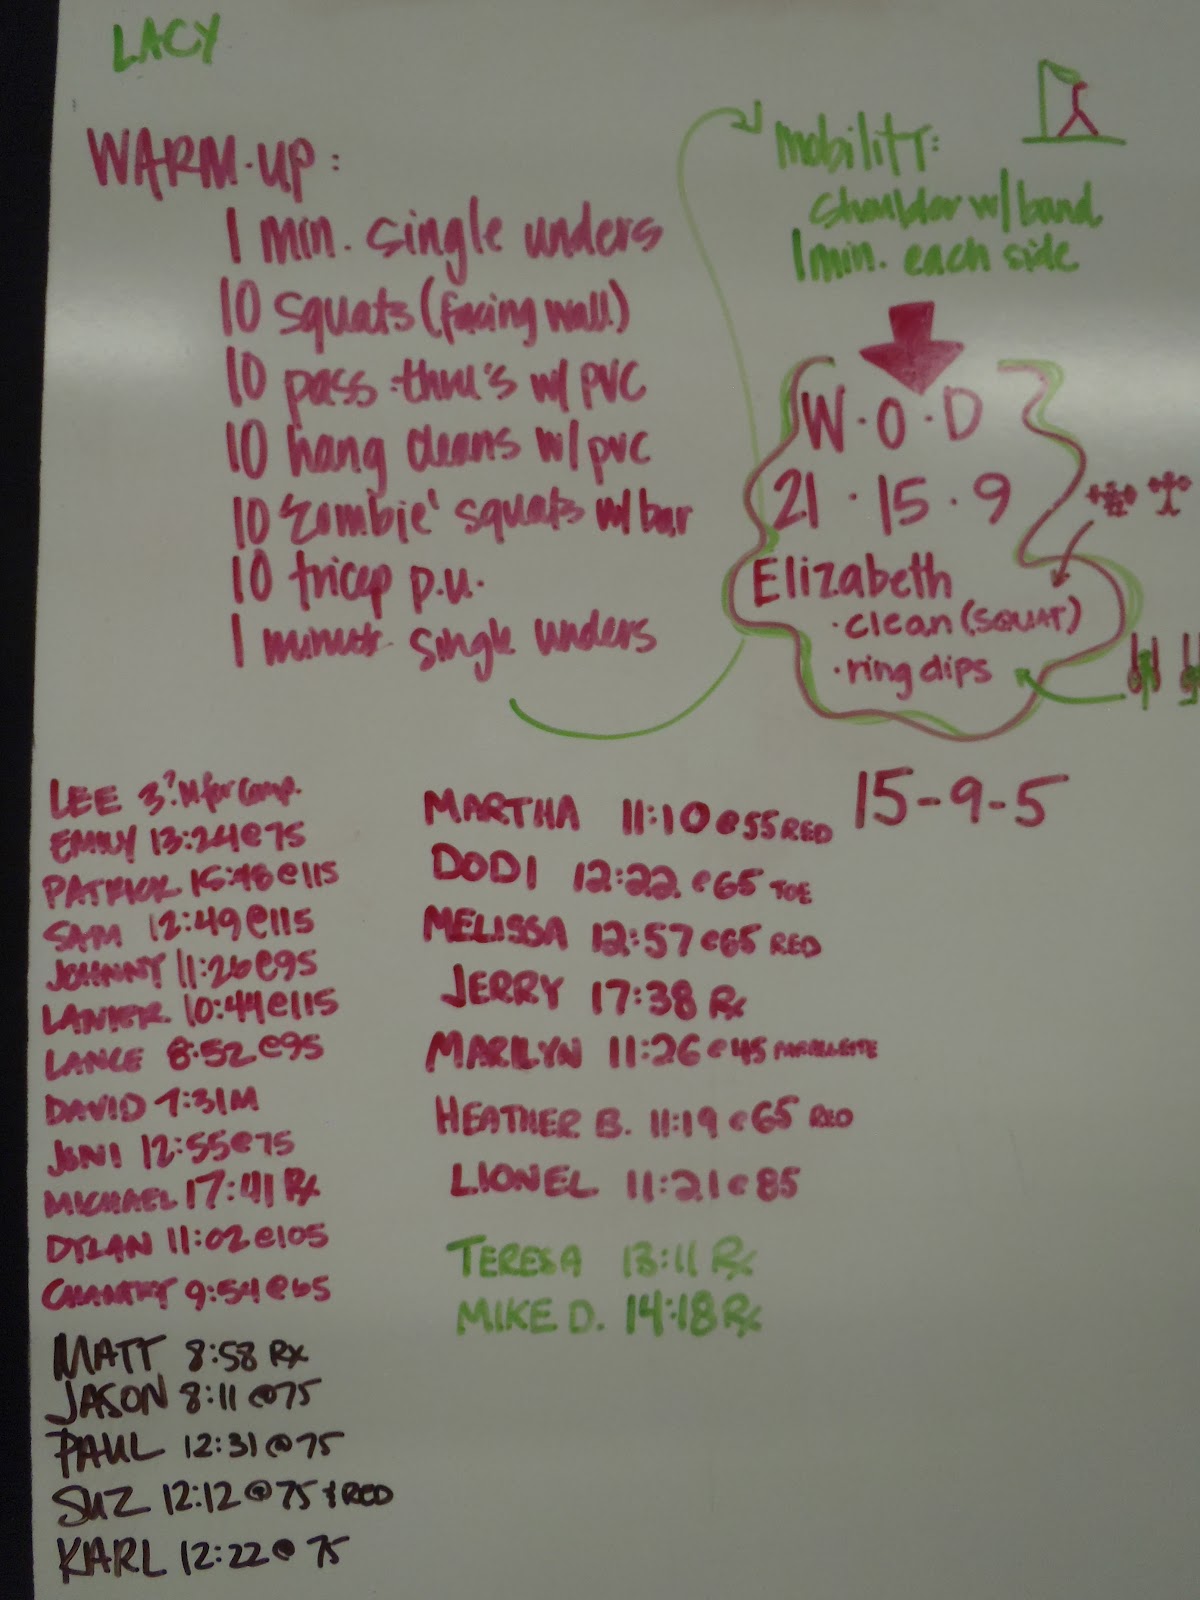 LACY
WARM-UP:
1 min. single unders
10 squats (facing wall)
10 pass-thru's w/ pvc
10 hang cleans w/ pvc
10 'zombie' squats w/ bar
10 tricep p.u.
1 minute single unders
mobility:
shoulder w/ band
1 min. each side
W.O.D
21.15.9
Elizabeth
· clean (SQUAT)
· ring dips
15-9-5
LEE for comp.
EMILY 13:24@75
PATRICK 15:48@115
SAM 12:49@115
JOHNNY 11:26@95
LANIER 10:44@115
LANCE 8:52@95
DAVID 7:31M
JONI 12:55@75
MICHAEL 17:41 Rx
DYLAN 11:02@105
9:54@65
MATT 8:58 Rx
JASON 8:11@75
PAUL 12:31@75
SUZ 12:12@75 + RED
KARL 12:22@75
MARTHA 11:10@55 RED
DODI 12:22@65 TOE
MELISSA 12:57@65 RED
JERRY 17:38 Rx
MARILYN 11:26@45 PARALLETTE
HEATHER B. 11:19@65 RED
LIONEL 11:21@85
TERESA 13:11 Rx
MIKE D. 14:18 Rx